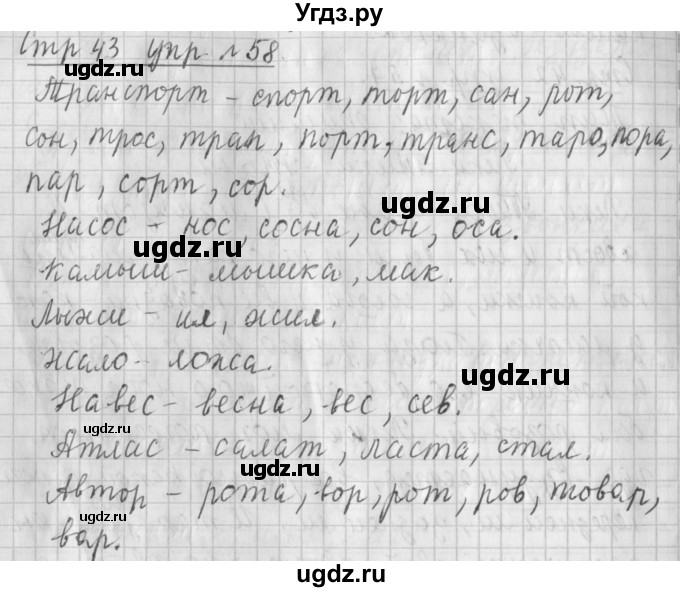 Угдз.ру
Стр 43 упр №58
Транспорт – спорт, торт, сан, рот,
сон, трос, трап, порт, транс, таро, пора,
пар, сорт, сор.
ugdz.ru
ugdz.ru
Насос – нос, сосна, сон, оса.
ugdz.ru
Камыш – мышка, мак.
Лыжи – ил, жил.
Жало – ложа.
ugdz.ru
Навес – весна, вес, сев.
ugdz.ru
Атлас – саллат, ласта, стал.
ugdz.ru
Автор – рота, вор, рот, ров, товар,
ugdz.ru
вар.
ugdz.ru